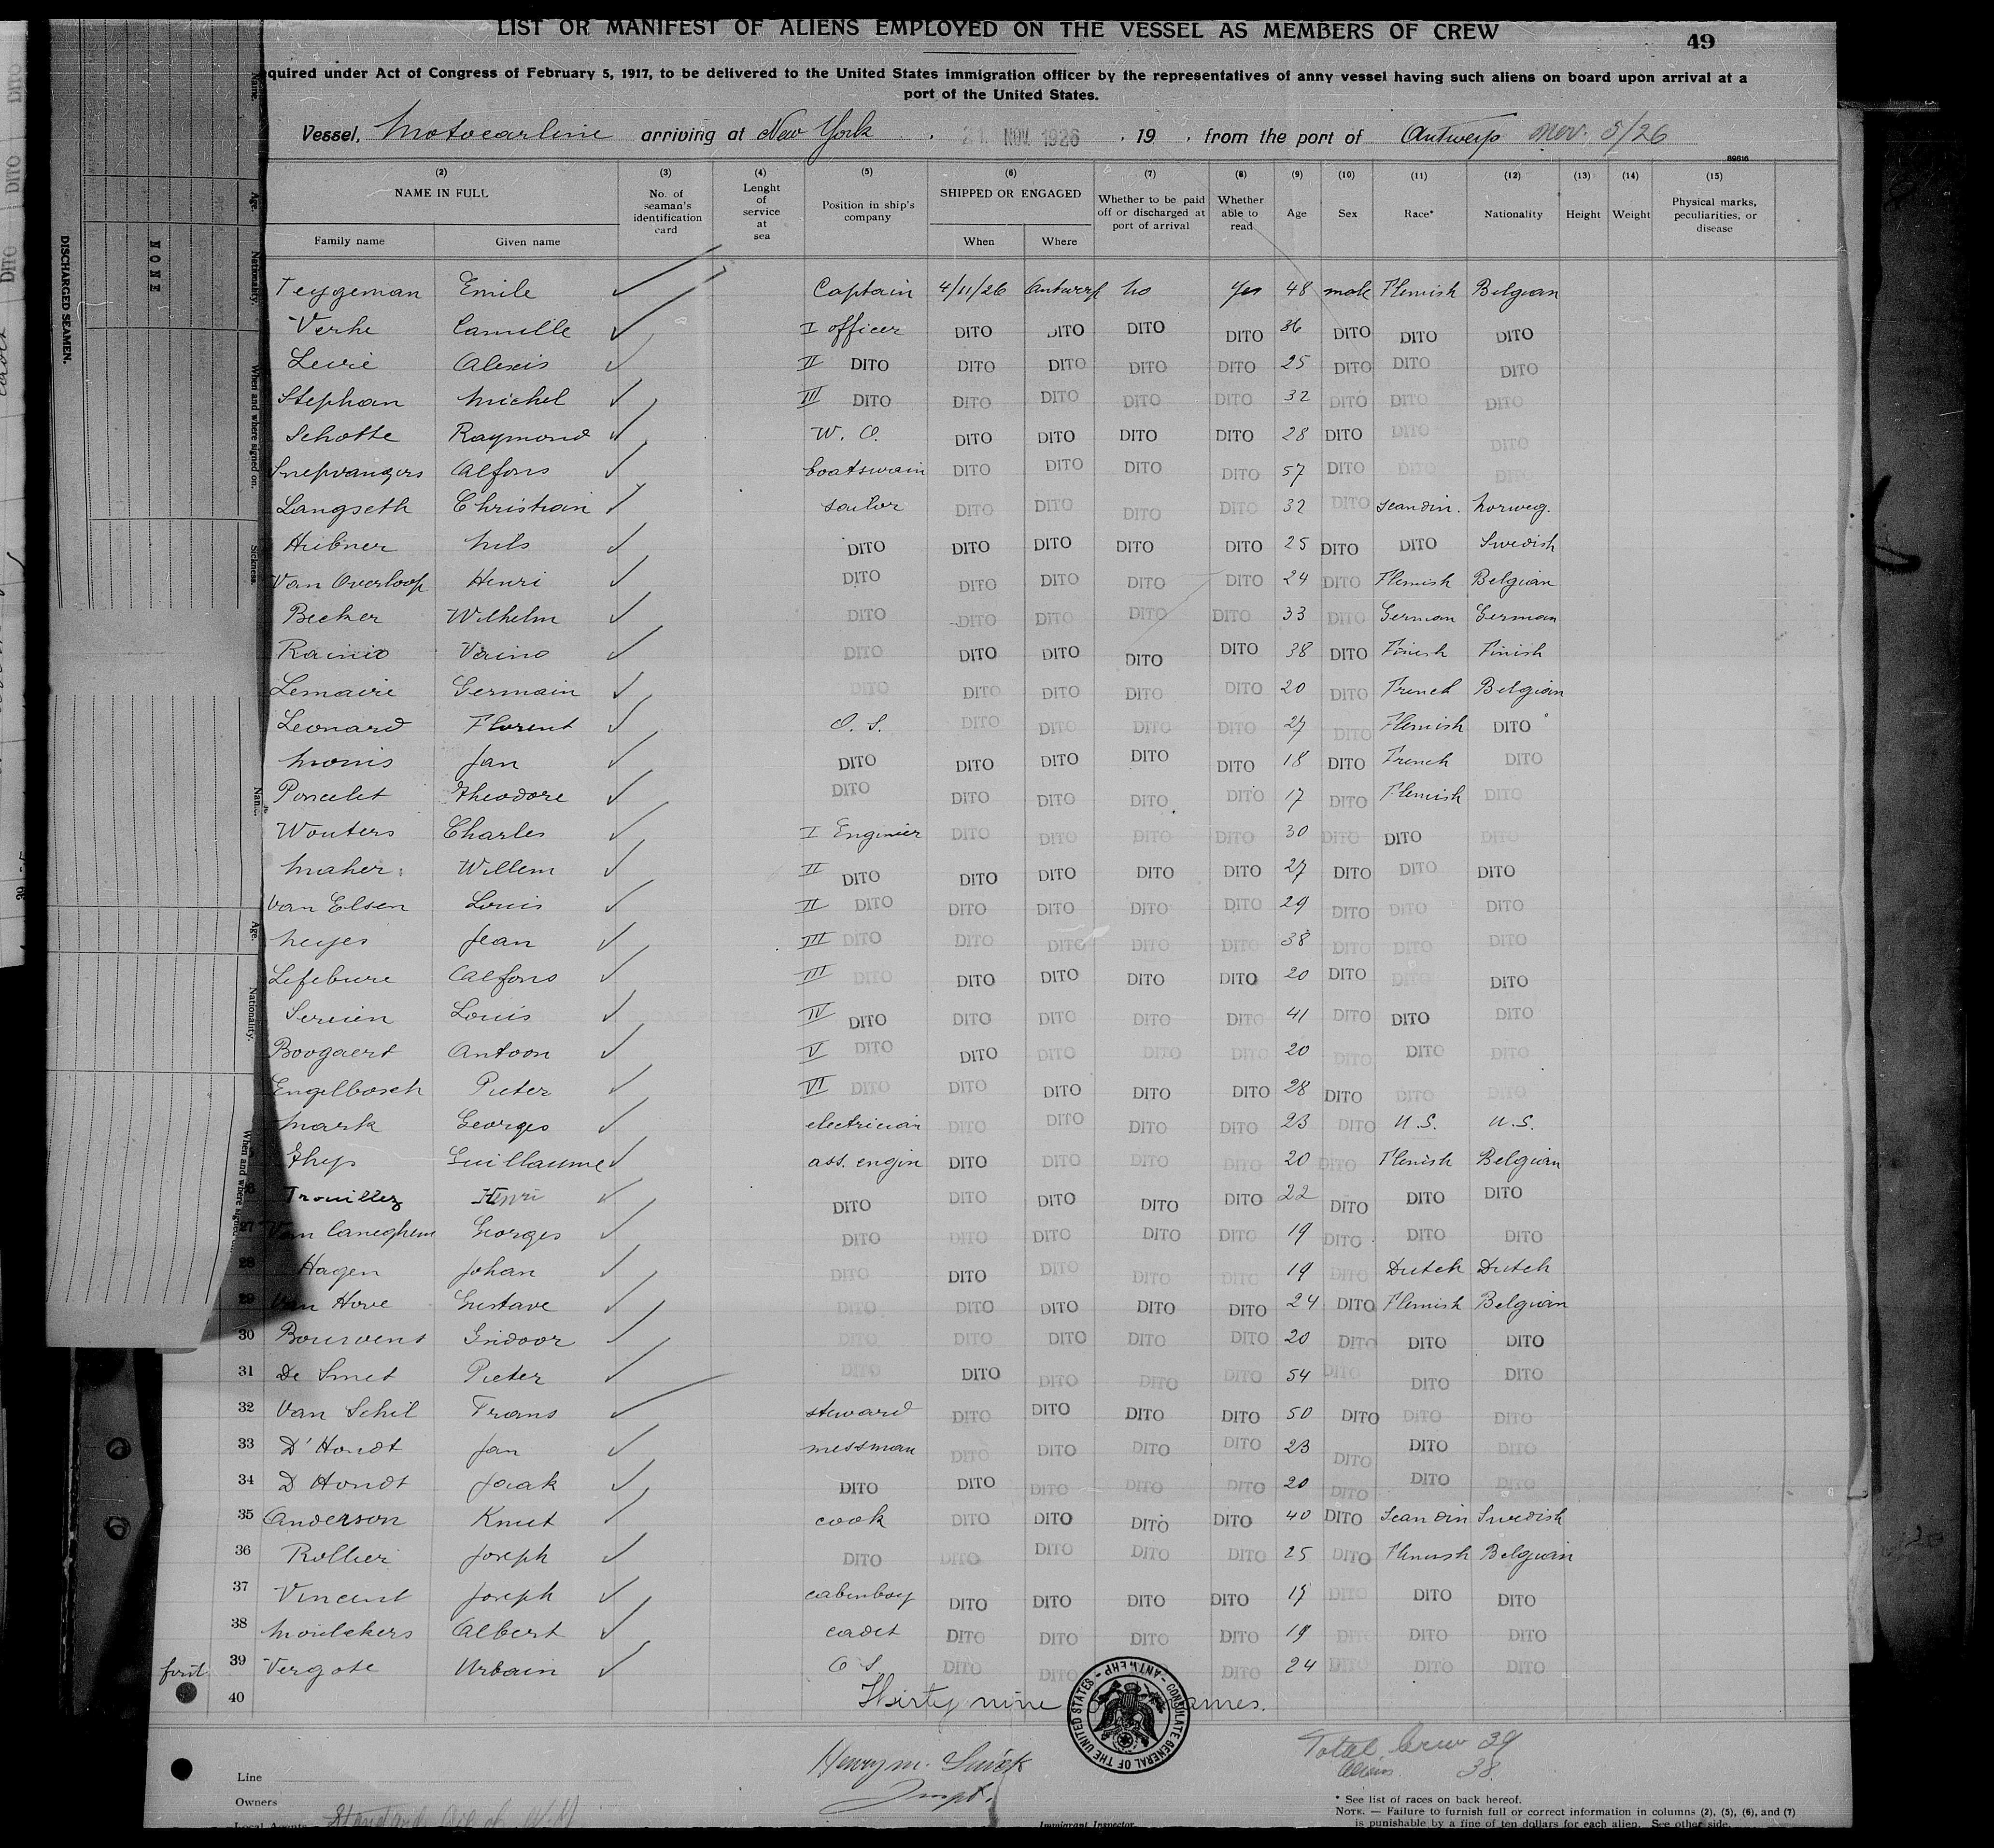 LIST OR MANIFEST OF ALIENS EMPLOYED ON THE VESSEL AS MEMBERS OF CREW
49
quired under Act of Congress of February 5, 1917, to be delivered to the United States immigration officer by the representatives of anny vessel having such aliens on board upon arrival at a
port of the United States.
Vessel, Motocarline arriving at New York 21 NOV 1926 19 , from the port of Antwerp Nov. 5/26
89816
(2) (3) (4) (5) (6) (7) (8) (9) (10) (11) (12) (13) (14) (15)
NAME IN FULL No. of seaman's identification card Lenght of service at sea Position in ship's company SHIPPED OR ENGAGED Whether to be paid off or discharged at port of arrival Whether able to read Age Sex Race* Nationality Height Weight Physical marks, peculiarities, or disease
Family name Given name When Where
Teygeman Emile Captain 4/11/26 Antwerp no Yes 48 male Flemish Belgian
Verhe Camille I officer DITO DITO DITO DITO 36 DITO DITO DITO
Levie Alexis II DITO DITO DITO DITO DITO 25 DITO DITO DITO
Stephan Michel III DITO DITO DITO DITO DITO 32 DITO DITO DITO
Schotte Raymond W. O. DITO DITO DITO DITO 28 DITO DITO DITO
Snepvangers Alfons boatswain DITO DITO DITO DITO 57 DITO DITO DITO
Langseth Christian sailor DITO DITO DITO DITO 32 DITO Scandin. Norweg.
Hubner Nils DITO DITO DITO DITO DITO 25 DITO DITO Swedish
Van Overloop Henri DITO DITO DITO DITO DITO 24 DITO Flemish Belgian
Becker Wilhelm DITO DITO DITO DITO DITO 33 DITO German German
Rainio Vaino DITO DITO DITO DITO DITO 38 DITO Finish Finish
Lemaire Germain DITO DITO DITO DITO DITO 20 DITO French Belgian
Leonard Florent O. S. DITO DITO DITO DITO 27 DITO Flemish DITO
Monis Jan DITO DITO DITO DITO DITO 18 DITO French DITO
Poncelet Theodore DITO DITO DITO DITO DITO 17 DITO Flemish DITO
Wouters Charles I Enginier DITO DITO DITO DITO 30 DITO DITO DITO
Maher Willem II DITO DITO DITO DITO DITO 27 DITO DITO DITO
Van Elsen Louis II DITO DITO DITO DITO DITO 29 DITO DITO DITO
Neyes Jean III DITO DITO DITO DITO DITO 38 DITO DITO DITO
Lefebure Alfons III DITO DITO DITO DITO DITO 20 DITO DITO DITO
Sercien Louis IV DITO DITO DITO DITO DITO 41 DITO DITO DITO
Boogaert Antoon V DITO DITO DITO DITO DITO 20 DITO DITO DITO
Engelbosch Pieter VI DITO DITO DITO DITO DITO 28 DITO DITO DITO
Mark Georges electrician DITO DITO DITO DITO 23 DITO U.S. U.S.
Thys Guillaume ass. engin DITO DITO DITO DITO 20 DITO Flemish Belgian
Trouillez Henri DITO DITO DITO DITO DITO 22 DITO DITO DITO
27 Van Caneghem Georges DITO DITO DITO DITO DITO 19 DITO DITO DITO
28 Hagen Johan DITO DITO DITO DITO DITO 19 DITO Dutch Dutch
29 Van Hove Gustave DITO DITO DITO DITO DITO 24 DITO Flemish Belgian
30 Bouwens Isidoor DITO DITO DITO DITO DITO 20 DITO DITO DITO
31 De Smet Pieter DITO DITO DITO DITO DITO 54 DITO DITO DITO
32 Van Schil Frans steward DITO DITO DITO DITO 50 DITO DITO DITO
33 D'Hondt Jan messman DITO DITO DITO DITO 23 DITO DITO DITO
34 D Hondt Jaak DITO DITO DITO DITO DITO 20 DITO DITO DITO
35 Anderson Knut cook DITO DITO DITO DITO 40 DITO Scandin Swedish
36 Rollier Joseph DITO DITO DITO DITO DITO 25 DITO Flemish Belgian
37 Vincent Joseph cabinboy DITO DITO DITO DITO DITO DITO DITO
38 Moulckers Albert cadet DITO DITO DITO DITO 19 DITO DITO DITO
first 39 Vergote Urbain O S. DITO DITO DITO DITO 24 DITO DITO DITO
40 Thirty nine names.
CONSULATE GENERAL OF THE UNITED STATES - ANTWERP -
Henry M.
Inspt.
Total Crew 39
Aliens 38
Line
Owners
Local Agents
Immigrant Inspector
* See list of races on back hereof.
NOTE. — Failure to furnish full or correct information in columns (2), (5), (6), and (7)
is punishable by a fine of ten dollars for each alien. See other side.
DISCHARGED SEAMEN.
NONE
Name.
Age.
Nationality.
When and where signed on.
Sickness.
Age.
Nationality.
When and where signed